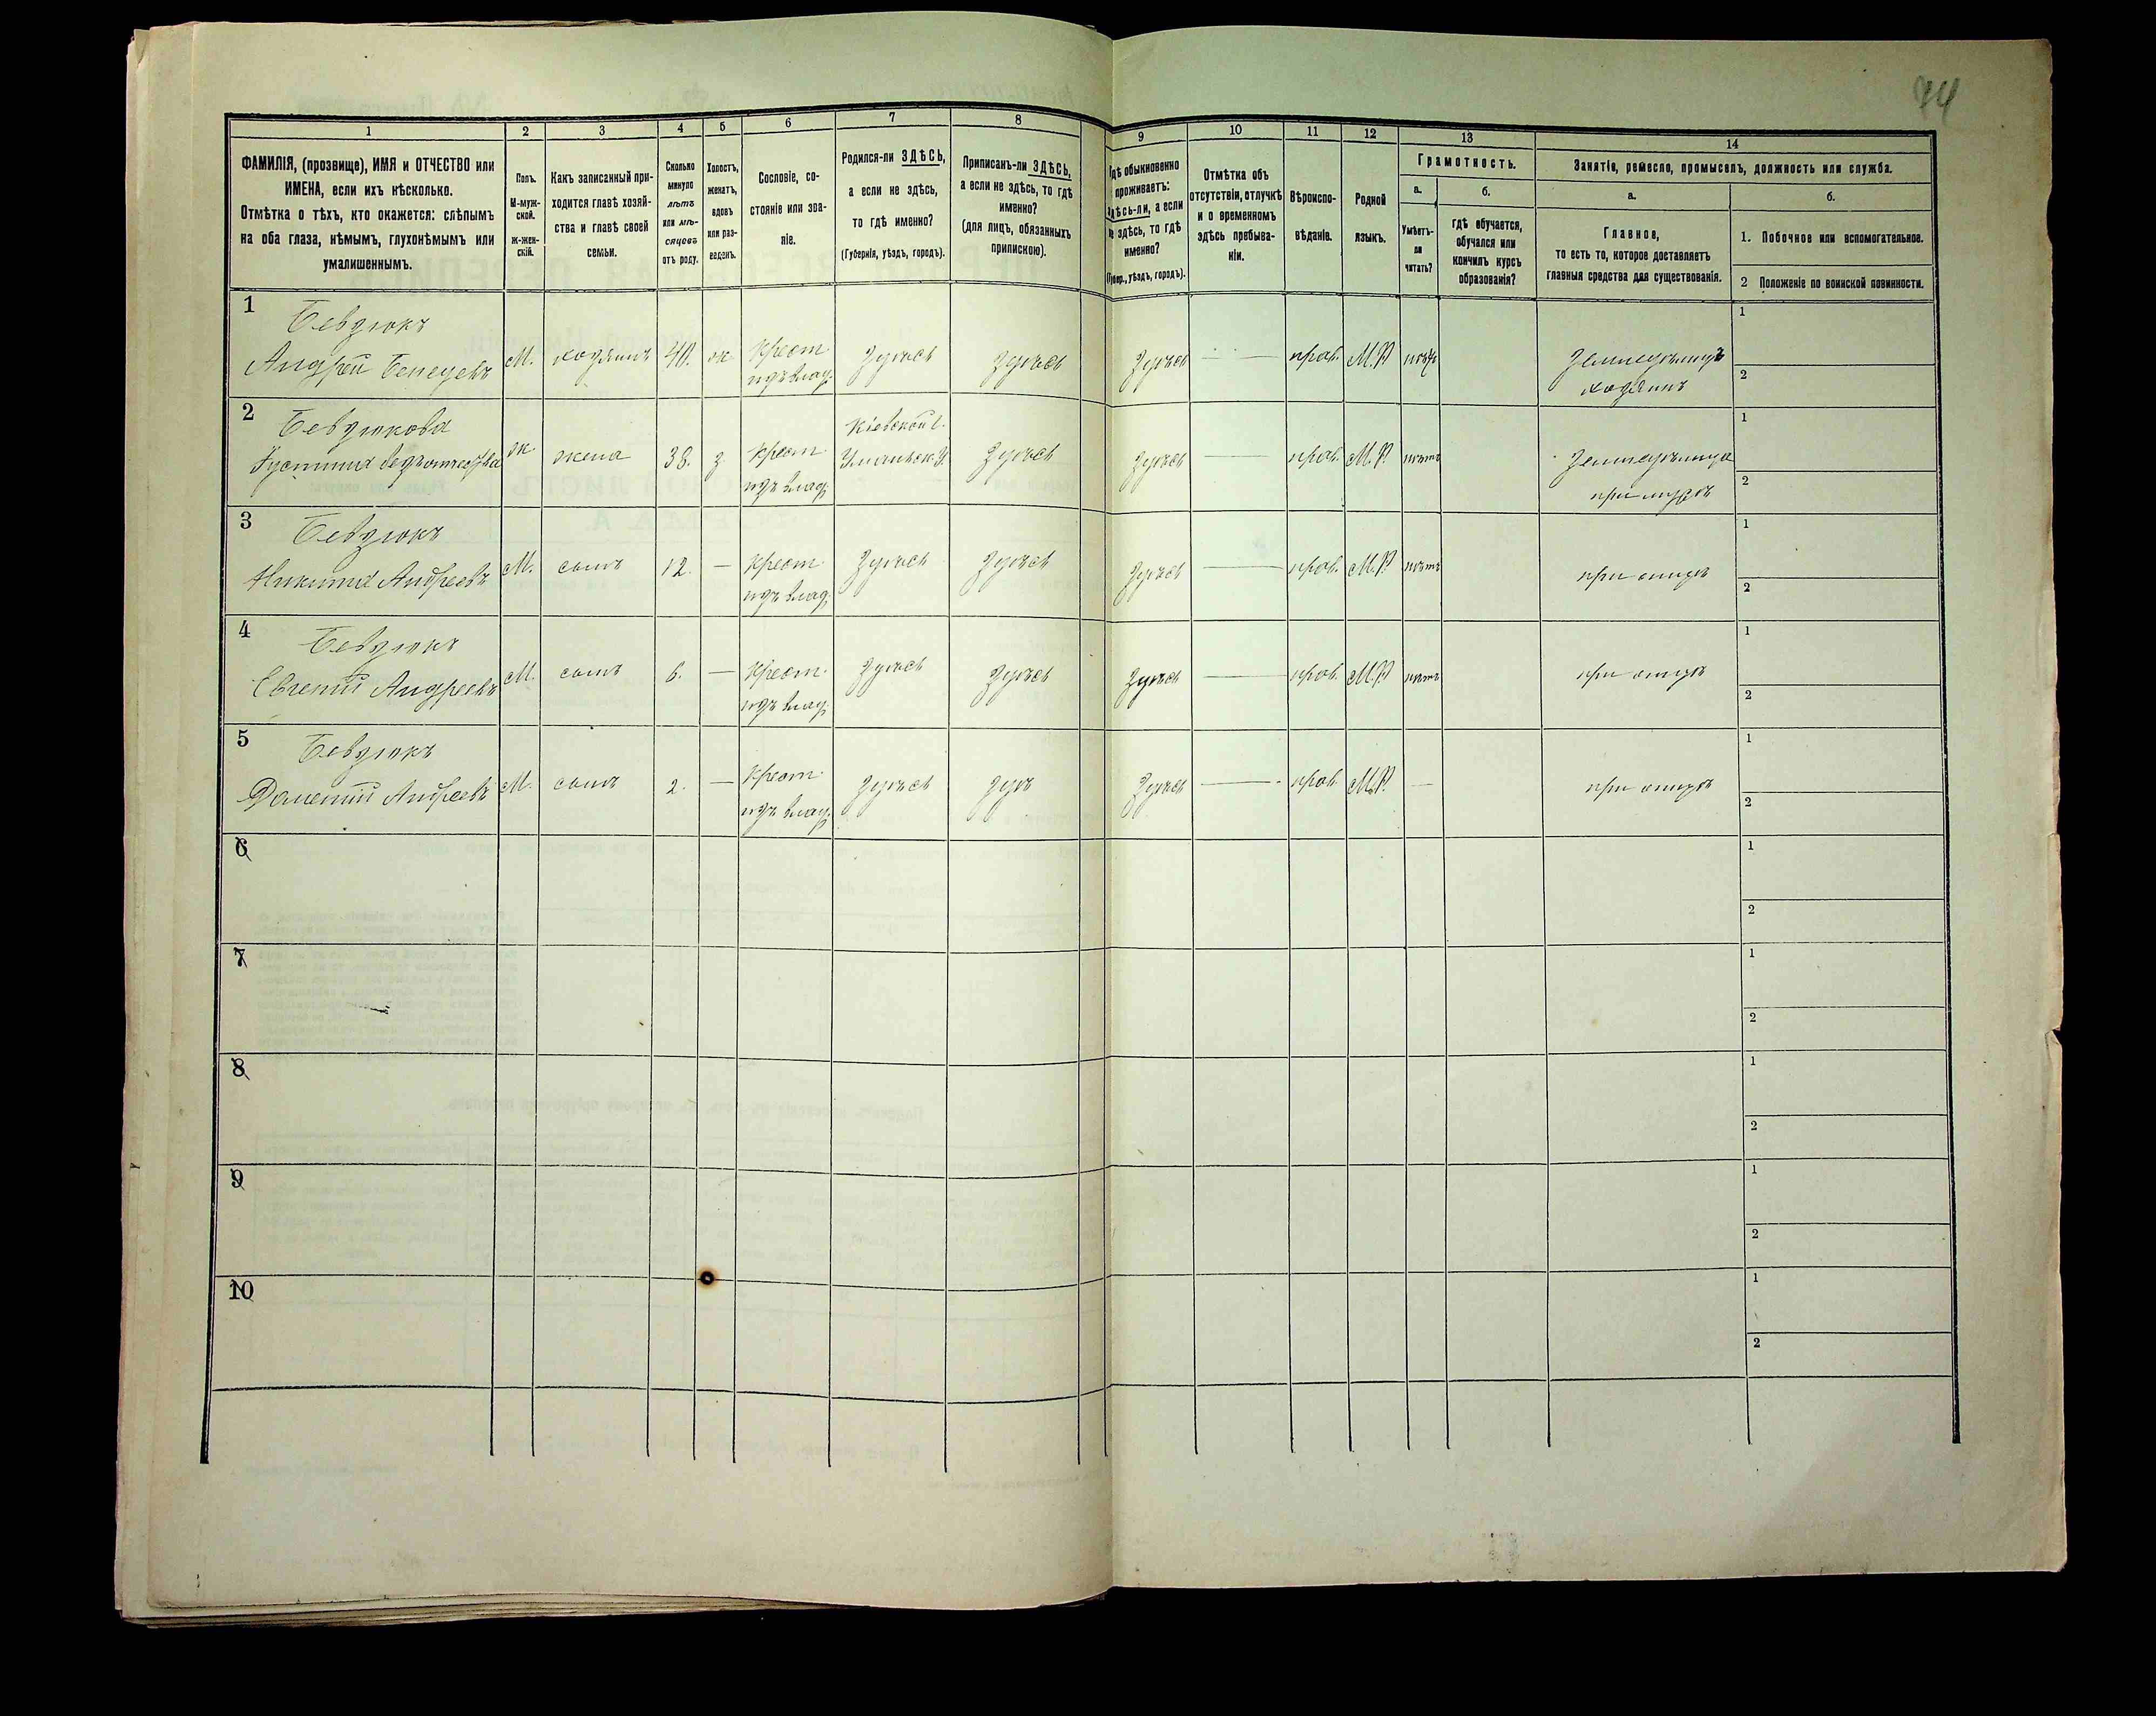 74
1
2
3
4
5
6
7
8
9
10
11
12
13
14
ФАМИЛІЯ, (прозвище), ИМЯ и ОТЧЕСТВО или
ИМЕНА, если ихъ нѣсколько.
Отмѣтка о тѣхъ, кто окажется: слѣпымъ
на оба глаза, нѣмымъ, глухонѣмымъ или
умалишеннымъ.
Полъ.
М-муж-
ской.
Ж-жен-
скій.
Какъ записанный при-
ходится главѣ хозяй-
ства и главѣ своей
семьи.
Сколько
минуло
лѣтъ
или мѣ-
сяцевъ
отъ роду.
Холостъ,
женатъ,
вдовъ
или раз-
веденъ.
Сословіе, со-
стояніе или зва-
ніе.
Родился-ли ЗДѢСЬ,
а если не здѣсь,
то гдѣ именно?
(Губернія, уѣздъ, городъ).
Приписанъ-ли ЗДѢСЬ,
а если не здѣсь, то гдѣ
именно?
(для лицъ, обязанныхъ
припискою).
Гдѣ обыкновенно
проживаетъ:
здѣсь-ли, а если
не здѣсь, то гдѣ
именно?
(Губер., уѣздъ, городъ).
Отмѣтка объ
отсутствіи, отлучкѣ
и о временномъ
здѣсь пребыва-
ніи.
Вѣроиспо-
вѣданіе.
Родной
языкъ.
Грамотность.
а.
Умѣетъ-
ли
читать?
б.
гдѣ обучается,
обучался или
кончилъ курсъ
образованія?
Занятіе, ремесло, промыселъ, должность или служба.
а.
Главное,
то есть то, которое доставляетъ
главныя средства для существованія.
б.
1. Побочное или вспомогательное.
2 Положеніе по воинской повинности.
1
Бевзюкъ
Андрей М. хозяинъ 40. ж Крест. здѣсь здѣсь здѣсь прав. М.Р. нѣтъ Земледѣлецъ
изъ влад. хозяинъ
1
2
2
Бевзюкова Кіевской г.
безъотчества ж жена 38. з Крест. Уманьск. у. здѣсь здѣсь прав. М.Р. нѣтъ
изъ влад. при мужѣ
1
2
3
Бевзюкъ
Никита Андреевъ М. сынъ 12. — Крест. здѣсь здѣсь здѣсь прав. М.Р. нѣтъ при отцѣ
изъ влад.
1
2
4
Бевзюкъ
Евгеній Андреевъ М. сынъ 6. — Крест. здѣсь здѣсь здѣсь прав. М.Р. нѣтъ при отцѣ
изъ влад.
1
2
5
Бевзюкъ
Андреевъ М. сынъ 2. — Крест. здѣсь здѣсь прав. М.Р. — при отцѣ
изъ влад.
1
2
6
1
2
7
1
2
8
1
2
9
1
2
10
1
2